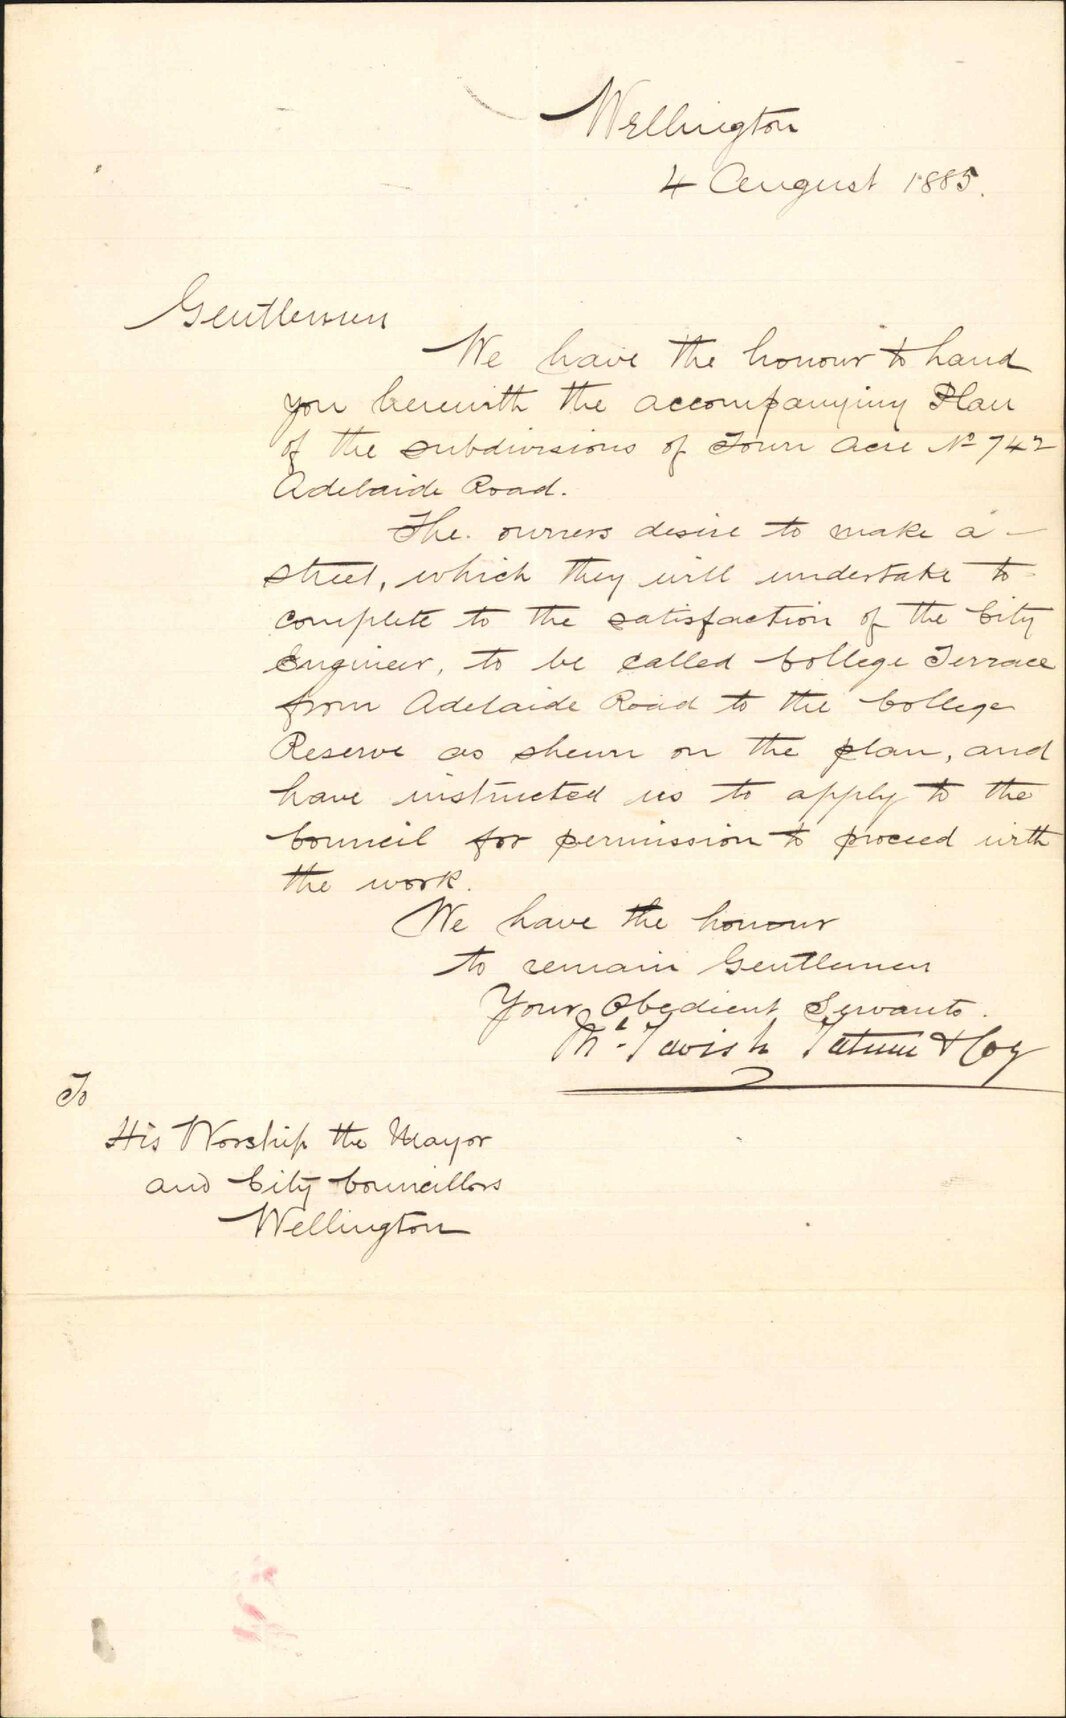 Wellington
4 August 1885.
Gentlemen
We have the honour to hand
you herewith the accompanying Plan
of the subdivisions of Town Acre No 742
Adelaide Road.
The owners desire to make a
street, which they will undertake to
complete to the satisfaction of the City
Engineer, to be called College Terrace
from Adelaide Road to the College
Reserve as shewn on the plan, and
have instructed us to apply to the
Council for permission to proceed with
the work.
We have the honour
to remain Gentlemen
Your Obedient Servants.
McTavish Tatum & Coy
To
His Worship the Mayor
and City Councillors
Wellington